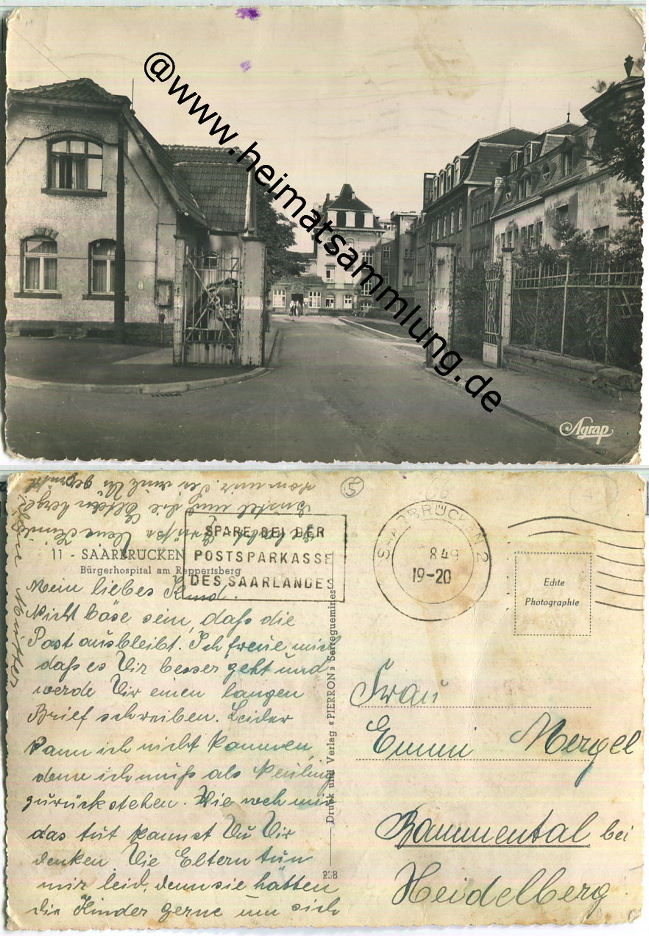 @www.heimatsammlung.de
Agrap
5
SPARE BEI DER
POSTSPARKASSE
DES SAARLANDES
SAARBRÜCKEN 2
8 49
19-20
11 - SAARBRÜCKEN
Bürgerhospital am Reppertsberg
Echte
Photographie
Mein liebes Kind.
Nicht böse sein, daß die
Post ausbleibt. Ich freue mich
daß es Dir besser geht und
werde Dir einen langen
Brief schreiben. Leider
kann ich nicht kommen,
denn ich muß als Neuling
zurückstehen. Wie weh mir
das tut kannst Du Dir
denken. Die Eltern tun
mir leid, denn sie hätten
die Kinder gerne um sich
Druck und Verlag «PIERRON» Sarreguemines
Frau
Emmi Mergel
Bammental bei
Heidelberg